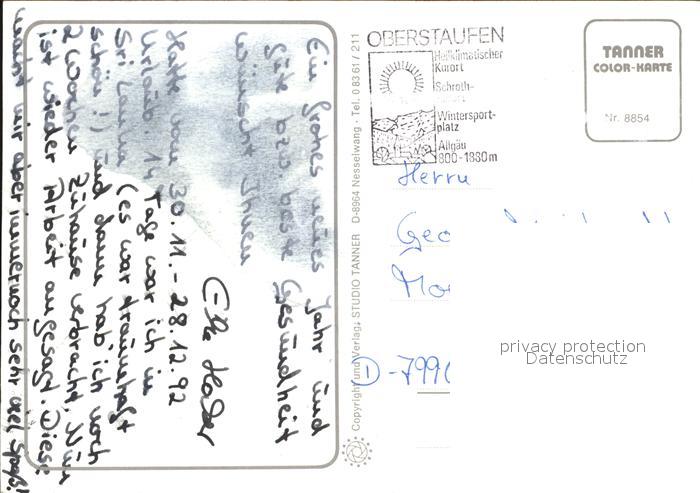 Ein frohes neues Jahr und
Gute bzw. beste Gesundheit
wünscht Ihnen
Elke
Hatte vom 30.11. - 28.12.92
Urlaub. 14 Tage war ich in
Sri Lanka (es war traumhaft
schön!) und dann hab' ich noch
2 Wochen Zuhause verbracht. Nun
ist wieder Arbeit angesagt. Diese
macht mir aber immernoch sehr viel Spaß!
Copyright und Verlag: STUDIO TANNER D-8964 Nesselwang · Tel. 0 83 61 / 211
OBERSTAUFEN
Heilklimatischer
Kurort
Schroth-
Wintersport-
platz
Allgäu
800-1880m
TANNER
COLOR-KARTE
Nr. 8854
Herrn
Geo
Mo
D-799
privacy protection
Datenschutz